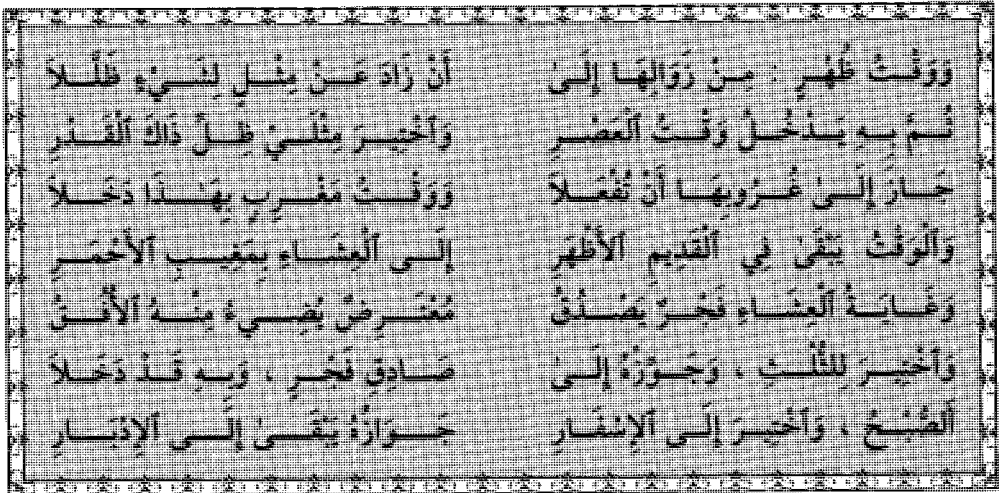 وَوَقْتُ ظُهْرٍ : مِنْ زَوَالِهَا إِلَىٰ أَنْ زَادَ عَنْ مِثْلٍ لِشَيْءٍ ظَلَّلاَ
ثُمَّ بِهِ يَدْخُلُ وَقْتُ ٱلْعَصْرِ وَٱخْتِيرَ مِثْلَيْ ظِلِّ ذَاكَ ٱلْقَدْرِ
جَازَ إِلَىٰ غُرُوبِهَا أَنْ تُفْعَلاَ وَوَقْتُ مَغْرِبٍ بِهَـٰذَا دَخَلاَ
وَٱلْوَقْتُ يَبْقَىٰ فِي ٱلْقَدِيمِ ٱلأَظْهَرِ إِلَى ٱلْعِشَاءِ بِمَغِيبِ ٱلأَحْمَرِ
وَغَايَةُ ٱلْعِشَاءِ فَجْرٌ يَصْدُقُ مُعْتَرِضٌ يُضِيءُ مِنْهُ ٱلأُفُقُ
وَٱخْتِيرَ لِلثُّلْثِ ، وَجَوِّزْهُ إِلَىٰ صَادِقِ فَجْرٍ ، وَبِهِ قَدْ دَخَلاَ
ٱلصُّبْحُ ، وَٱخْتِيرَ إِلَى ٱلإِسْفَارِ جَوَازُهُ يَبْقَىٰ إِلَى ٱلإِدْبَارِ